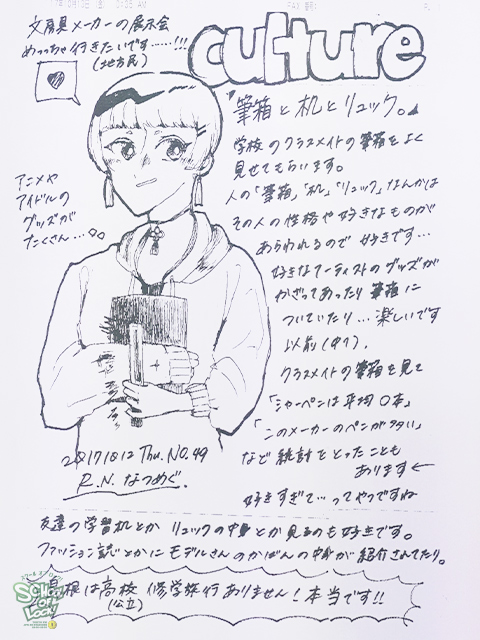 文房具メーカーの展示会
めっちゃ行きたいです……!!!
(地方民)
culture
"筆箱と机とリュック。
学校のクラスメイトの筆箱をよく
見せてもらいます。
人の「筆箱」「机」「リュック」なんかは
その人の性格や好きなものが
あらわれるので 好きです…
好きなアーティストのグッズが
かざってあったり 筆箱に
ついていたり…楽しいです
以前(中1)、
クラスメイトの筆箱を見て
「シャーペンは平均〇本」
「このメーカーのペンが多い」
など 統計をとったことも
あります←
好きすぎて…ってやつですね
アニメや
アイドルの
グッズが
たくさん…
20171012 Thu. NO.49
R.N. なつめぐ。
友達の学習机とか リュックの中身とか見るのも好きです。
ファッション誌とかにモデルさんのかばんの中身が紹介されてたり。
島根は高校 修学旅行ありません!本当です!!
(公立)
SCHOOL OF LOCK!